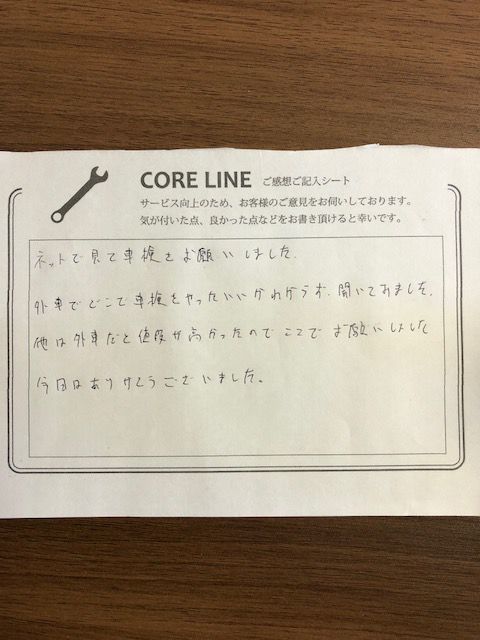 CORE LINE ご感想ご記入シート
サービス向上のため、お客様のご意見をお伺いしております。
気が付いた点、良かった点などをお書き頂けると幸いです。
ネットで見て車検をお願いしました.
外車でどこで車検をやったらいいかわからず.聞いてみました.
他は外車だと値段が高かったのでここでお願いしました
今回はありがとうございました。